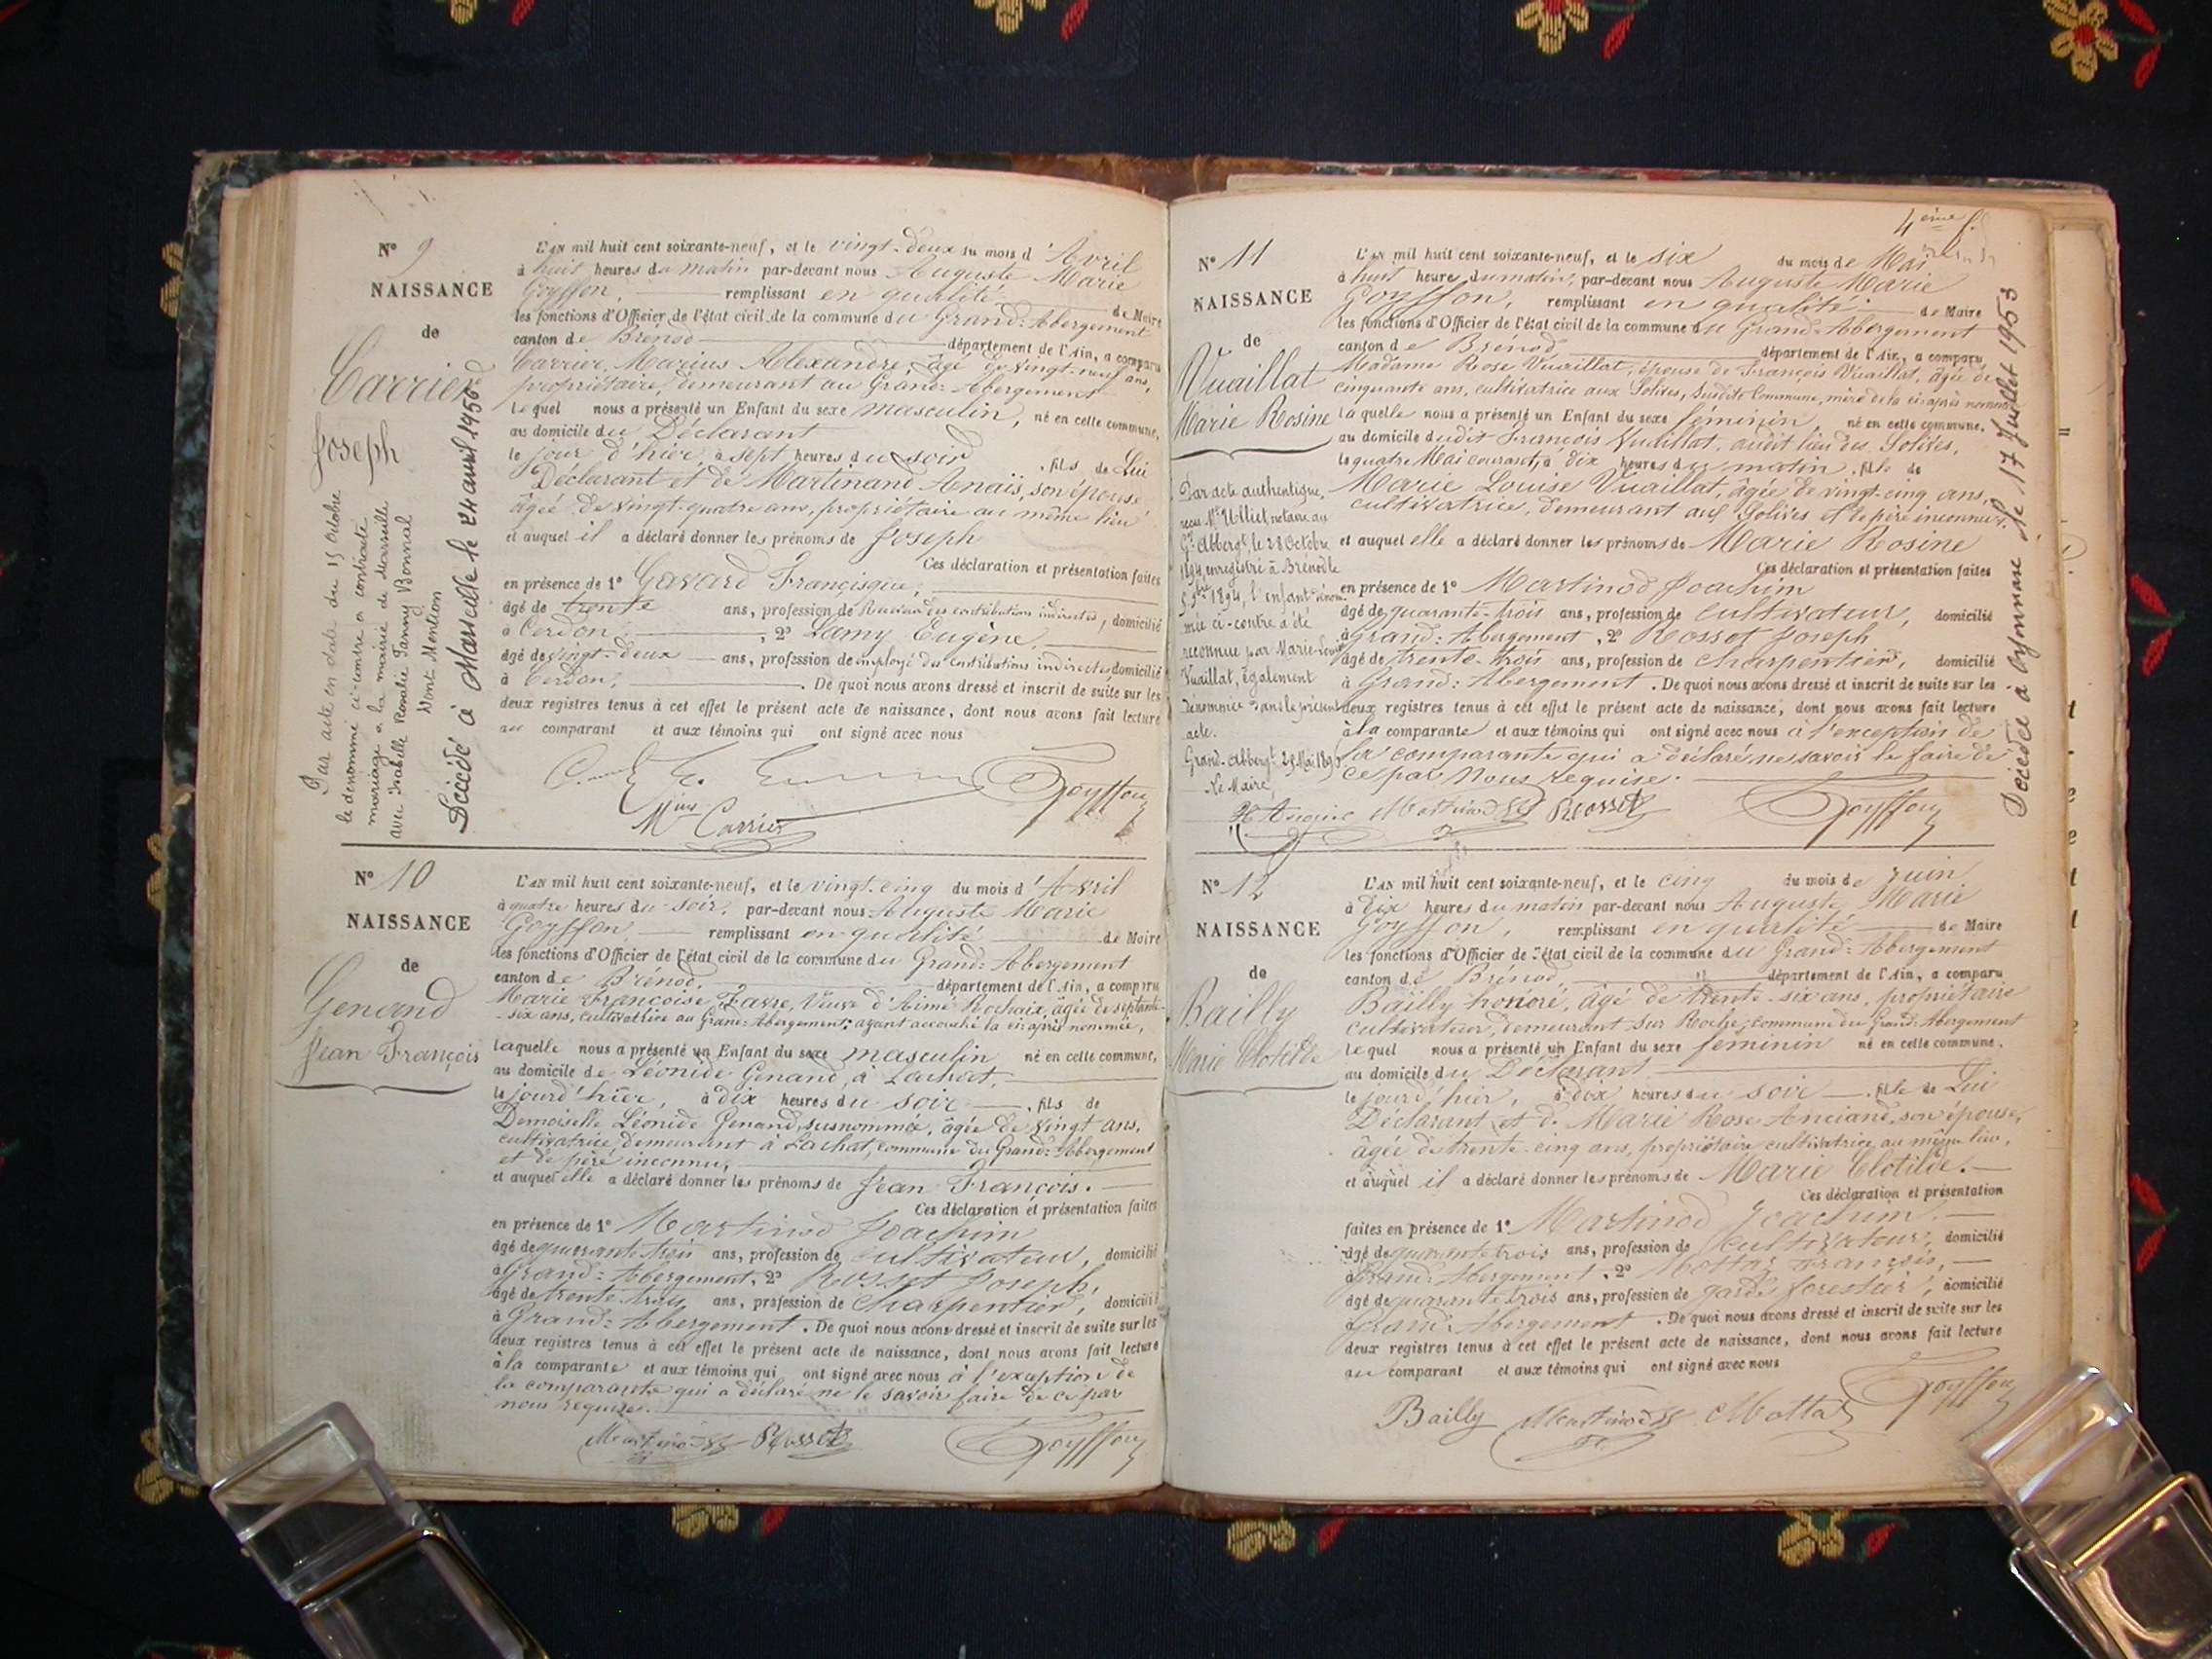 N° 9
NAISSANCE
de
Carrier
Joseph
Par acte en date du 15 Octobre
le dénommé ci-contre a contracté
mariage à la mairie de Marseille
avec Isabelle Rosalie Fanny Bonnal
Dont Mention
Décédé à Marseille le 24 avril 1956
L'AN mil huit cent soixante-neuf, et le vingt-deux du mois d'Avril
à huit heures du matin par-devant nous Auguste Marie
Goyffon, remplissant en qualité de Maire
les fonctions d'Officier de l'état civil de la commune du Grand-Abergement
canton de Brénod département de l'Ain, a comparu
Carrier, Marius Alexandre, âgé de vingt-neuf ans,
propriétaire, demeurant au Grand-Abergement
lequel nous a présenté un Enfant du sexe masculin, né en cette commune,
au domicile du Déclarant
le jour d'hier, à sept heures du soir, fils de Lui
Déclarant et de Martinand Anaïs, son épouse
âgée de vingt-quatre ans, propriétaire au même lieu
et auquel il a déclaré donner les prénoms de Joseph
Ces déclaration et présentation faites
en présence de 1° Gavard Francisque,
âgé de trente ans, profession de Receveur des contributions indirectes, domicilié
à Cerdon, 2° Lamy Eugène,
âgé de vingt-deux ans, profession de employé des contributions indirectes domicilié
à Cerdon, De quoi nous avons dressé et inscrit de suite sur les
deux registres tenus à cet effet le présent acte de naissance, dont nous avons fait lecture
au comparant et aux témoins qui ont signé avec nous
Goyffon
Mius Carrier
N° 10
NAISSANCE
de
Genand
Jean François
L'AN mil huit cent soixante-neuf, et le vingt-cinq du mois d'Avril
à quatre heures du soir, par-devant nous Auguste Marie
Goyffon remplissant en qualité de Maire
les fonctions d'Officier de l'état civil de la commune du Grand-Abergement
canton de Brénod, département de l'Ain, a comparu
Marie Françoise Favre, Veuve d'Aimé Rochaix, âgée de septante-
-six ans, cultivatrice au Grand-Abergement; ayant accouché la ci-après nommée,
laquelle nous a présenté un Enfant du sexe masculin né en cette commune,
au domicile de Léonide Genand, à Lachat,
le jour d'hier, à dix heures du soir, fils de
Demoiselle Léonide Genand, susnommée, âgée de vingt ans,
cultivatrice demeurant à Lachat, commune du Grand-Abergement
et de père inconnu,
et auquel elle a déclaré donner les prénoms de Jean François.
Ces déclaration et présentation faites
en présence de 1° Martinod Joachim
âgé de quarante trois ans, profession de cultivateur, domicilié
à Grand-Abergement, 2° Rosset Joseph,
âgé de trente-trois ans, profession de charpentier, domicilié
à Grand-Abergement. De quoi nous avons dressé et inscrit de suite sur les
deux registres tenus à cet effet le présent acte de naissance, dont nous avons fait lecture
à la comparante et aux témoins qui ont signé avec nous à l'exception de
la comparante qui a déclaré ne le savoir faire de ce par
nous requise.
Martinod Rosset Goyffon
4ème f.
N° 11
NAISSANCE
de
Vuaillat
Marie Rosine
Par acte authentique,
reçu Me Ulliet, notaire au
Gd Abbergt, le 28 Octobre
1894, enregistré à Brénod le
5 9bre 1894, l'enfant dénom-
mée ci-contre a été
reconnue par Marie-Louise
Vuaillat, également
dénommée dans le présent
acte.
Grand-Abbergt 29 Mai 1896
Le Maire,
L'AN mil huit cent soixante-neuf, et le six du mois de Mai
à huit heures du matin, par-devant nous Auguste Marie
Goyffon, remplissant en qualité de Maire
les fonctions d'Officier de l'état civil de la commune du Grand-Abergement
canton de Brénod département de l'Ain, a comparu
Madame Rose Vuaillat, épouse de François Vuaillat, âgée de
cinquante ans, cultivatrice aux Solives, susdite Commune, mère de la ci-après nommée
laquelle nous a présenté un Enfant du sexe féminin, né en cette commune,
au domicile dudit François Vuaillat, audit lieu des Solives,
le quatre Mai courant, à dix heures du matin, fille de
Marie Louise Vuaillat, âgée de vingt-cinq ans,
cultivatrice, demeurant aux Solives et de père inconnu,
et auquel elle a déclaré donner les prénoms de Marie Rosine
Ces déclaration et présentation faites
en présence de 1° Martinod Joachim
âgé de quarante-trois ans, profession de cultivateur, domicilié
à Grand-Abergement, 2° Rosset Joseph
âgé de trente-trois ans, profession de charpentier, domicilié
à Grand-Abergement. De quoi nous avons dressé et inscrit de suite sur les
deux registres tenus à cet effet le présent acte de naissance, dont nous avons fait lecture
à la comparante et aux témoins qui ont signé avec nous à l'exception de
la comparante qui a déclaré ne savoir le faire de
ce par nous requise.
Martinod Rosset Goyffon
Décédée à Oyonnax le 17 Juillet 1953
N° 12
NAISSANCE
de
Bailly
Marie Clotilde
L'AN mil huit cent soixante-neuf, et le cinq du mois de Juin
à dix heures du matin par-devant nous Auguste Marie
Goyffon, remplissant en qualité de Maire
les fonctions d'Officier de l'état civil de la commune du Grand-Abergement
canton de Brénod, département de l'Ain, a comparu
Bailly honoré, âgé de trente-six ans, propriétaire
cultivateur, demeurant sur Roche, commune du Grand-Abergement
lequel nous a présenté un Enfant du sexe féminin né en cette commune,
au domicile du Déclarant
le jour d'hier, à dix heures du soir, fille de Lui
Déclarant et de Marie Rose Anciand, son épouse,
âgée de trente-cinq ans, propriétaire cultivatrice au même lieu,
et auquel il a déclaré donner les prénoms de Marie Clotilde.
Ces déclaration et présentation
faites en présence de 1° Martinod Joachim.
âgé de quarante trois ans, profession de cultivateur, domicilié
à Grand-Abergement, 2° Mottaz François,
âgé de quarante trois ans, profession de garde forestier, domicilié
à Grand-Abergement. De quoi nous avons dressé et inscrit de suite sur les
deux registres tenus à cet effet le présent acte de naissance, dont nous avons fait lecture
au comparant et aux témoins qui ont signé avec nous
Bailly Martinod Mottaz Goyffon